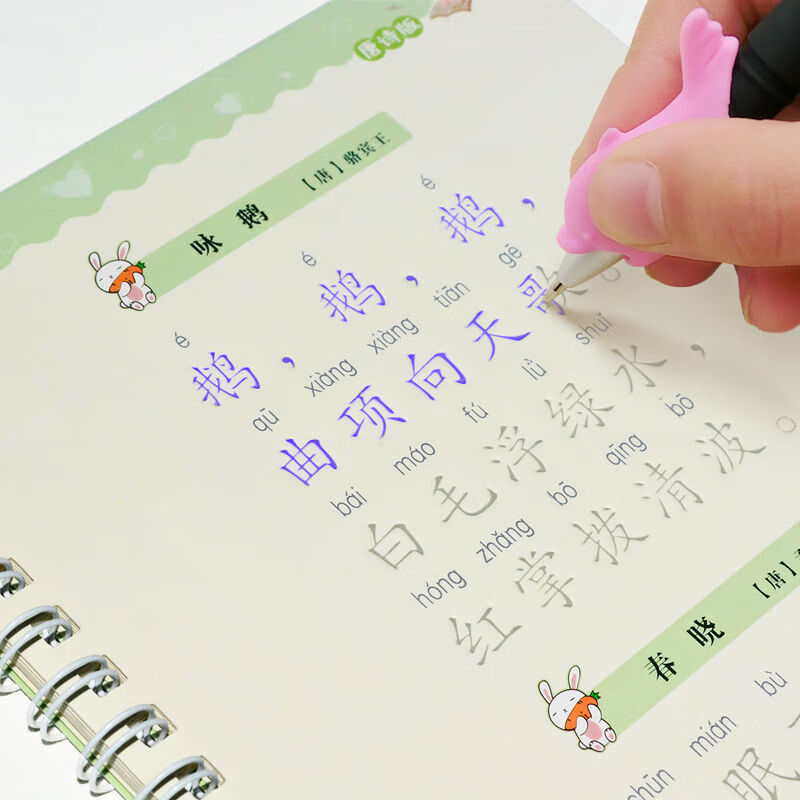 唐诗版
咏鹅 【唐】骆宾王
é é é
鹅，鹅，鹅，
qū xiàng xiàng tiān gē
曲项向天歌。
bái máo fú lǜ shuǐ
白毛浮绿水，
hóng zhǎng bō qīng bō
红掌拨清波。
春晓 【唐】
chūn mián bù
眠